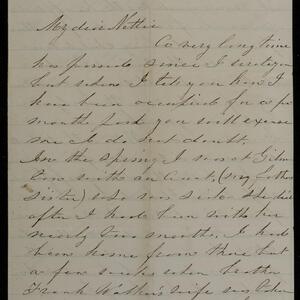 My dear Nettie
A very long time
has passed since I
but when I tell you how I
have been occupied for a few
months past you will excuse
me I do not doubt.
In the spring I was at
with an Aunt, (my father's
sister) who was sick. She died
after I had been with her
nearly two months. I had
been home from there but
a few weeks when brother
Frank Walker's wife was taken